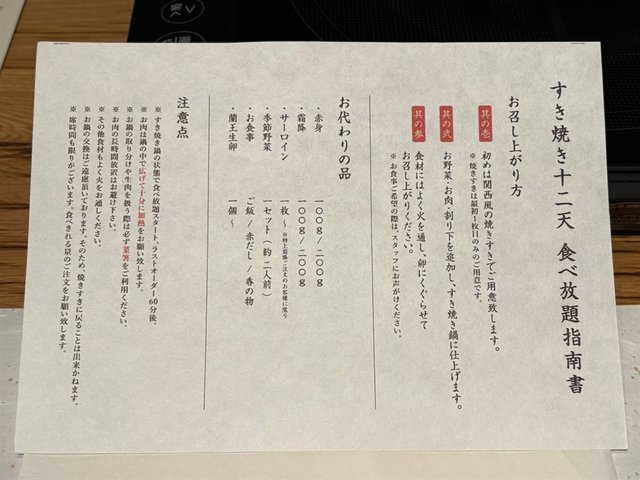 すき焼き十二天 食べ放題指南書
お召し上がり方
其の壱
初めは関西風の焼きすきでご用意致します。
※ 焼きすきは最初1枚目のみのご用意です。
其の弐
お野菜・お肉・割り下を追加し、すき焼き鍋に仕上げます。
其の参
食材にはよく火を通し、卵にくぐらせて
お召し上がりください。
※ お食事ご希望の際は、スタッフにお声がけください。
お代わりの品
・赤身 一〇〇g / 二〇〇g
・霜降 一〇〇g / 二〇〇g
・サーロイン 一枚〜 ※特上霜降ご注文のお客様に限り
・季節野菜 一セット（約二人前）
・お食事 ご飯 / 赤だし / 香の物
・蘭王生卵 一個〜
注意点
※ すき焼き鍋の状態で食べ放題スタート、ラストオーダー60分後。
※ お肉は鍋の中で広げて十分に加熱をお願い致します。
※ お鍋の取り分けや生肉を扱う際は必ず菜箸をご利用ください。
※ お肉の長時間放置はお避け下さい。
※ その他食材もよく火をお通しください。
※ お鍋の交換はご遠慮頂いております。そのため、焼きすきに戻ることは出来かねます。
※ 席時間も限りがございます。食べきれる量のご注文をお願い致します。